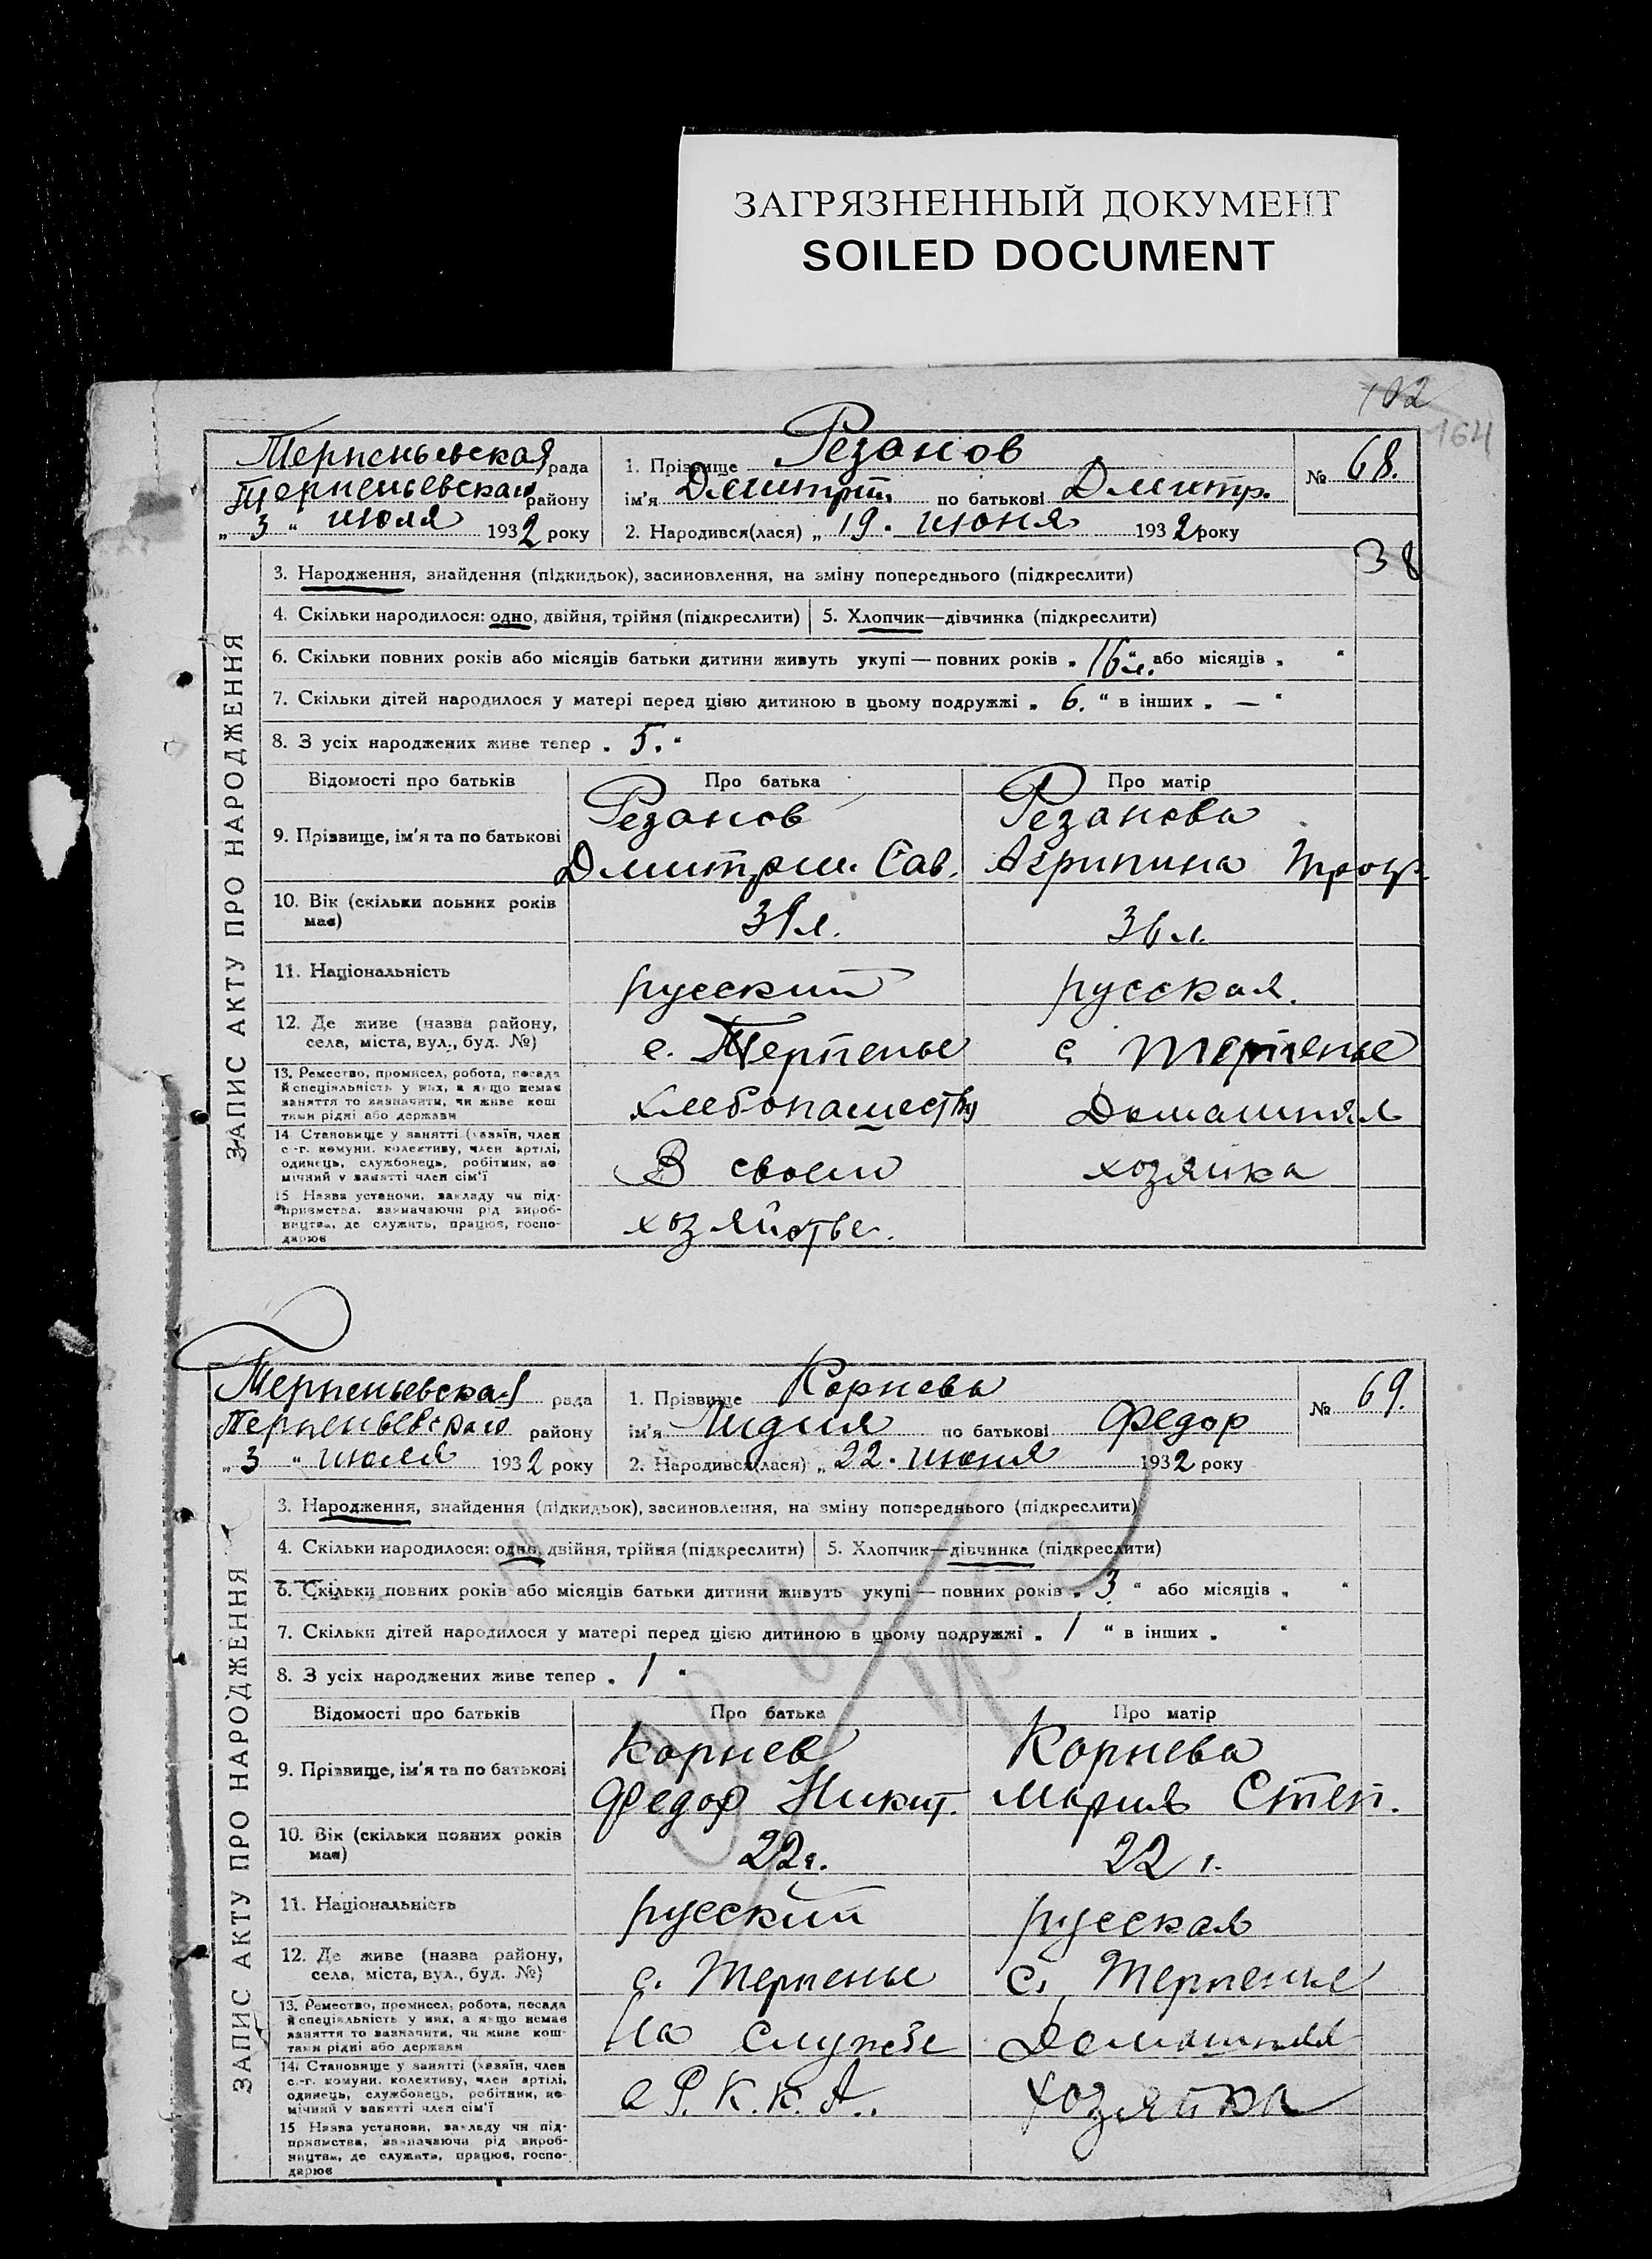 ЗАГРЯЗНЕННЫЙ ДОКУМЕНТ
SOILED DOCUMENT
102
164
Терпеньевская рада
Терпеньевского району
„ 3 “ июля 1932 року
1. Прізвище Резанов
ім'я Дмитрий по батькові Дмитр.
2. Народився(лася) „ 19. июня 1932 року
№ 68.
38
ЗАПИС АКТУ ПРО НАРОДЖЕННЯ
3. Народження, знайдення (підкидьок), засиновлення, на зміну попереднього (підкреслити)
4. Скільки народилося: одно, двійня, трійня (підкреслити) 5. Хлопчик—дівчинка (підкреслити)
6. Скільки повних років або місяців батьки дитини живуть укупі — повних років „ 16 л. “ або місяців „ “
7. Скільки дітей народилося у матері перед цією дитиною в цьому подружжі „ 6. “ в інших „ — “
8. З усіх народжених живе тепер „ 5. “
Відомості про батьків Про батька Про матір
9. Прізвище, ім'я та по батькові
Резанов Резанова
Дмитрий Сав. Агрипина Троф.
10. Вік (скільки повних років має)
39 л. 36 л.
11. Національність русский русская.
12. Де живе (назва району,
села, міста, вул., буд. №)
с. Терпенье с. Терпенье
13. Ремество, промисел, робота, посада
й спеціяльність у них, а якщо немає
заняття то визначити, чи живе кош
тами рідні або держави
хлебопашеству Домашняя
14. Становище у занятті (хазяїн, член
с.-г. комуни, колективу, член артілі,
одинець, службовець, робітник, по
мічний у занятті член сім'ї
В своем хозяйка
15 Назва установи, закладу чи під-
приємства, зазначаючи рід вироб-
ництва, де служить, працює, госпо-
дарює
хозяйстве.
Терпеньевская рада
Терпеньевского району
„ 3 “ июля 1932 року
1. Прізвище Корнева
ім'я Лидия по батькові Федор
2. Народився(лася) „ 22. июня 1932 року
№ 69.
ЗАПИС АКТУ ПРО НАРОДЖЕННЯ
3. Народження, знайдення (підкидьок), засиновлення, на зміну попереднього (підкреслити)
4. Скільки народилося: одно, двійня, трійня (підкреслити) 5. Хлопчик—дівчинка (підкреслити)
6. Скільки повних років або місяців батьки дитини живуть укупі — повних років „ 3 “ або місяців „ “
7. Скільки дітей народилося у матері перед цією дитиною в цьому подружжі „ 1 “ в інших „ “
8. З усіх народжених живе тепер „ 1 “
Відомості про батьків Про батька Про матір
9. Прізвище, ім'я та по батькові
Корнев Корнева
Федор Никит. Мария Степ.
10. Вік (скільки повних років має)
22 г. 22 г.
11. Національність русский русская
12. Де живе (назва району,
села, міста, вул., буд. №)
с. Терпенье с. Терпенье
13. Ремество, промисел, робота, посада
й спеціяльність у них, а якщо немає
заняття то визначити, чи живе кош-
тами рідні або держави
На службе Домашняя
14. Становище у занятті (хазяїн, член
с.-г. комуни, колективу, член артілі,
одинець, службовець, робітник, по-
мічний у занятті член сім'ї
в Р.К.К.А. хозяйка
15 Назва установи, закладу чи під-
приємства, зазначаючи рід вироб-
ництва, де служить, працює, госпо-
дарює